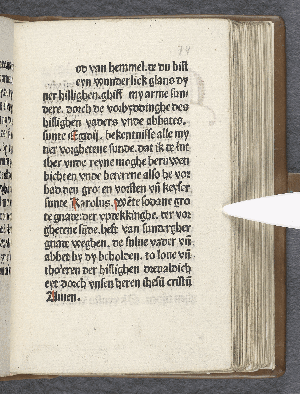 74
od van hemmel. de du bist
eyn wunderlick glans dy
ner hillighen. ghiff my arme sun
dere. dorch de vorbyddinghe des
hillighen vaders vnde abbates.
sunte Egidij. bekentnisse alle my
ner vorghetene sunde. dat ik de lut
ther vnde reyne moghe beruwen
bichten vnde beteren also he vor
bad den groten vorsten vñ keyser
sunte Karolus.
te gnade der vptekkinghe. der vor
ghetene sūde. heft van sundergher
gnade weghen. de sulue vader vñ
abbet by dy beholden. to loue vñ
tho eren der hillighen drevaldich
eyt dorch vnsen heren ihesū cristū
Amen.